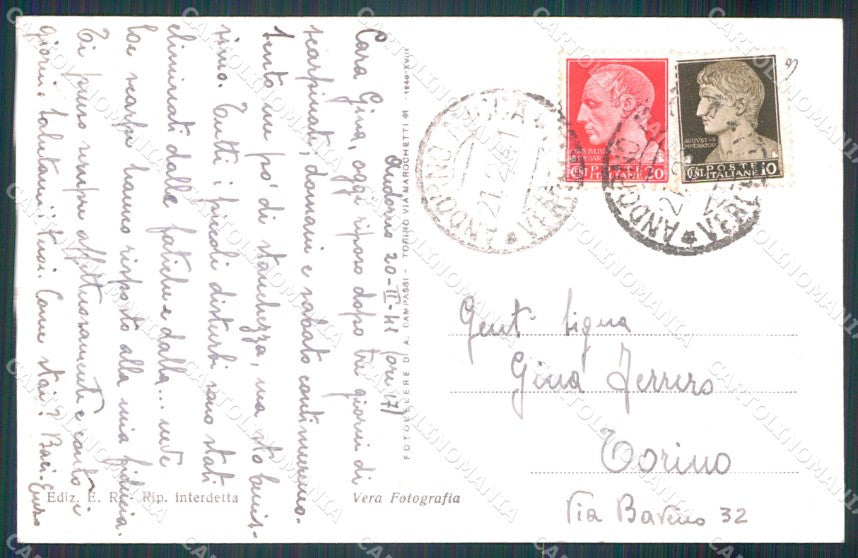 Andorno 20-II-41 (ore 17)
Cara Gina, oggi riposo dopo tre giorni di
scarpinate; domani e sabato continueremo.
Sento un po' di stanchezza, ma sto benis-
simo. Tutti i piccoli disturbi sono stati
eliminati dalle fatiche e dalla... neve
Le scarpe hanno risposto alla mia fiducia.
Ti penso sempre affettuosamente e conto i
giorni. Salutami i tuoi. Come stai? Baci. Enzo
Ediz. E. R. - Rip. interdetta
Vera Fotografia
FOTOCELERE DI A. CAMPASSI - TORINO VIA MAROCHETTI 41 - 1940-XVIII
ANDORNO MICCA
21.2.41
VERCELLI
POSTE
ITALIANE
CENT. 20
AVGVSTVS
IMPERATOR
POSTE
ITALIANE
CENT. 10
ANDORNO
VERCELLI
Gent Signa
Gina Ferrero
Torino
Via Baveno 32
CARTOLINOMANIA